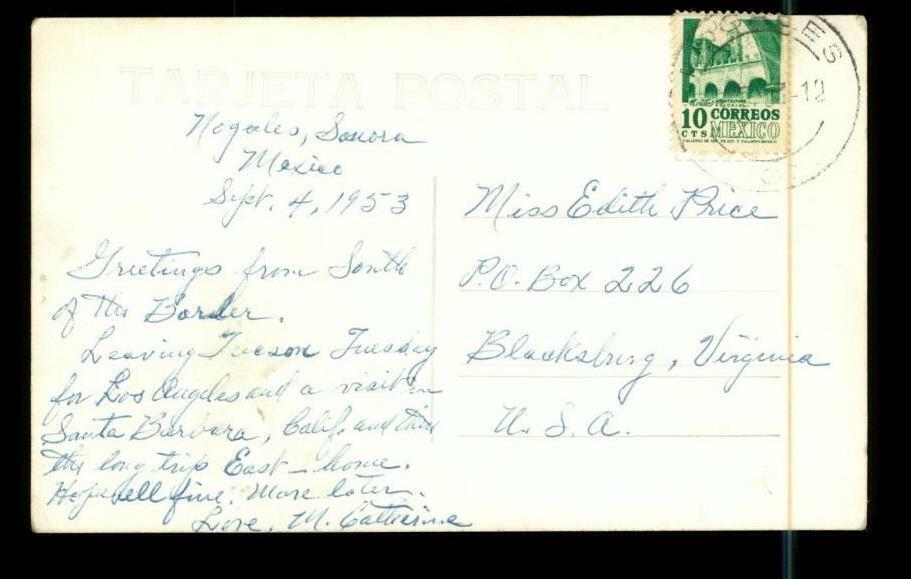 TARJETA POSTAL
Nogales, Sonora
Mexico
Sept. 4, 1953
Greetings from South
of the Border.
Leaving Tucson Tuesday
for Los Angeles and a visit in
Santa Barbara, Calif. and then
the long trip East - home.
Hope all fine. More later.
Love, M. Catherine
Morelos ARQUITECTURA
COLONIAL
10 CORREOS
CTS MEXICO
Miss Edith Price
P.O. Box 226
Blacksburg, Virginia
U. S. A.